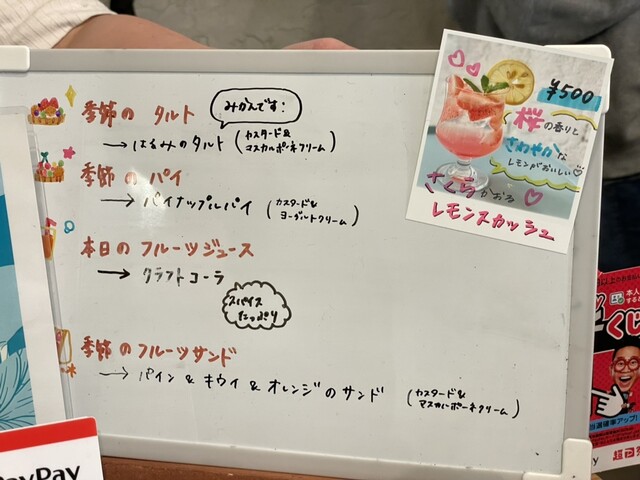 季節の タルト
みかんです!
→ はるみのタルト (カスタード& マスカルポーネクリーム)
季節の パイ
→ パイナップルパイ (カスタード& ヨーグルトクリーム)
本日の フルーツジュース
→ クラフトコーラ
スパイス
たっぷり
季節のフルーツサンド
→ パイン & キウイ & オレンジのサンド (カスタード& マスカルポーネクリーム)
¥500
桜の香りと
さわやかな
レモンがおいしい♡
さくらかおる
レモンスカッシュ
PayPay
本人
くじ
超